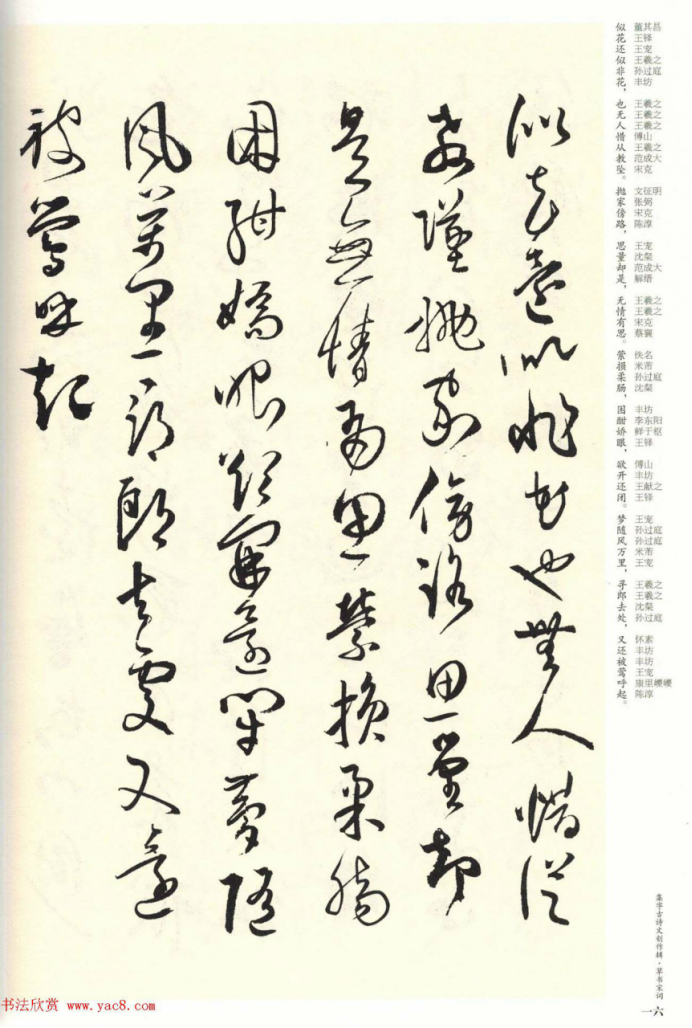 似花還似非花也無人惜從
教墜抛家傍路思量却
是無情有思縈損柔腸
困酣嬌眼欲開還閉夢隨
風萬里尋郎去處又還
被鶯呼起
似 董其昌
花 王铎
还 王宠
似 王羲之
非 孙过庭
花， 丰坊
也 王羲之
无 王羲之
人 王羲之
惜 傅山
从 王羲之
教 范成大
坠。 宋克
抛 文征明
家 张弼
傍 宋克
路， 陈淳
思 王宠
量 沈粲
却 范成大
是， 解缙
无 王羲之
情 王羲之
有 宋克
思。 蔡襄
萦 佚名
损 米芾
柔 孙过庭
肠， 沈粲
困 丰坊
酣 李东阳
娇 鲜于枢
眼， 王铎
欲 傅山
开 丰坊
还 王献之
闭。 王铎
梦 王宠
随 孙过庭
风 孙过庭
万 米芾
里， 王宠
寻 王羲之
郎 王羲之
去 沈粲
处， 孙过庭
又 怀素
还 丰坊
被 丰坊
莺 王宠
呼 康里巎巎
起。 陈淳
集字古诗文创作辑·草书宋词
一六
书法欣赏 www.yac8.com